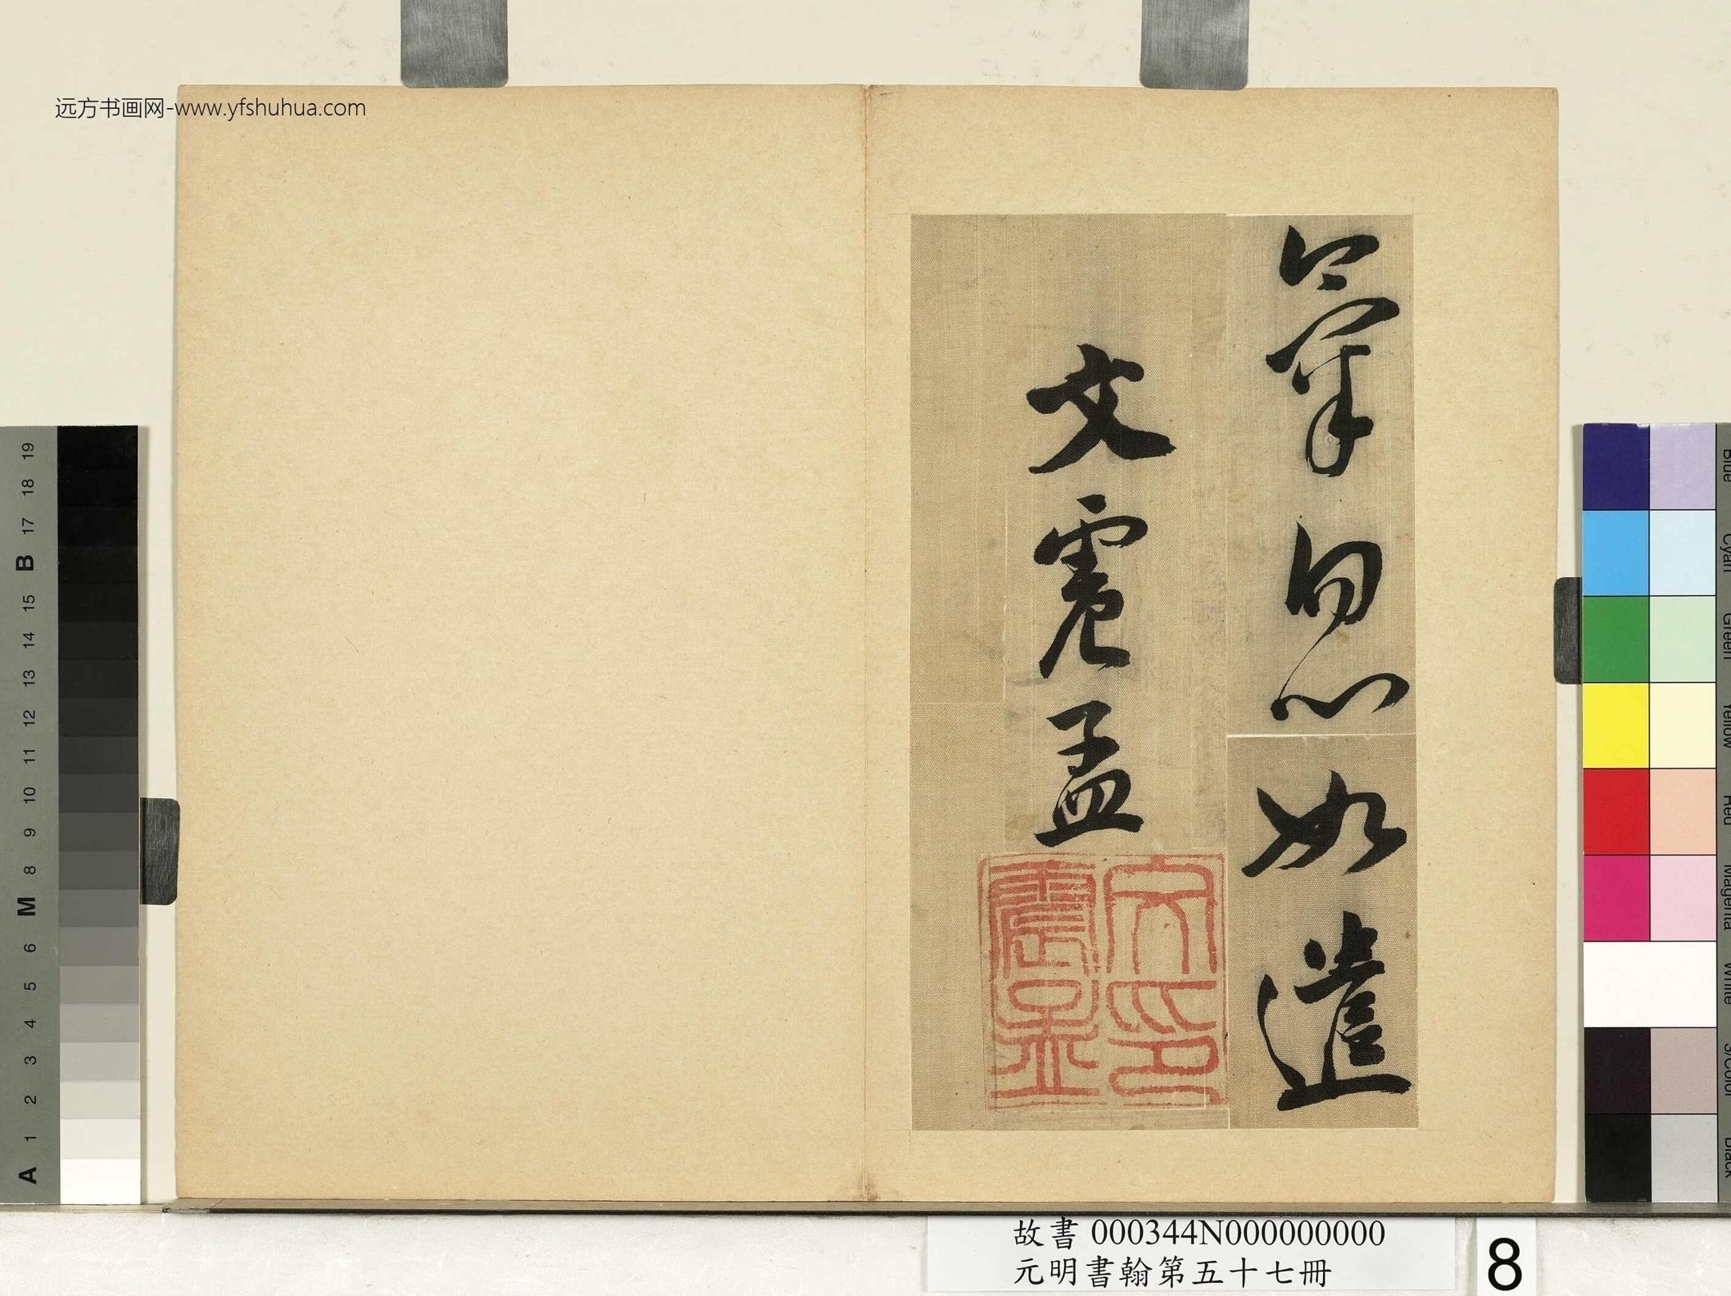 远方书画网-www.yfshuhua.com
如遣
文震孟
文震孟印
19
18
17
B
15
14
13
12
11
10
9
8
M
6
5
4
3
2
1
A
Blue
Cyan
Green
Yellow
Red
Magenta
White
3/Color
Black
故書 000344N000000000
元明書翰第五十七冊
8